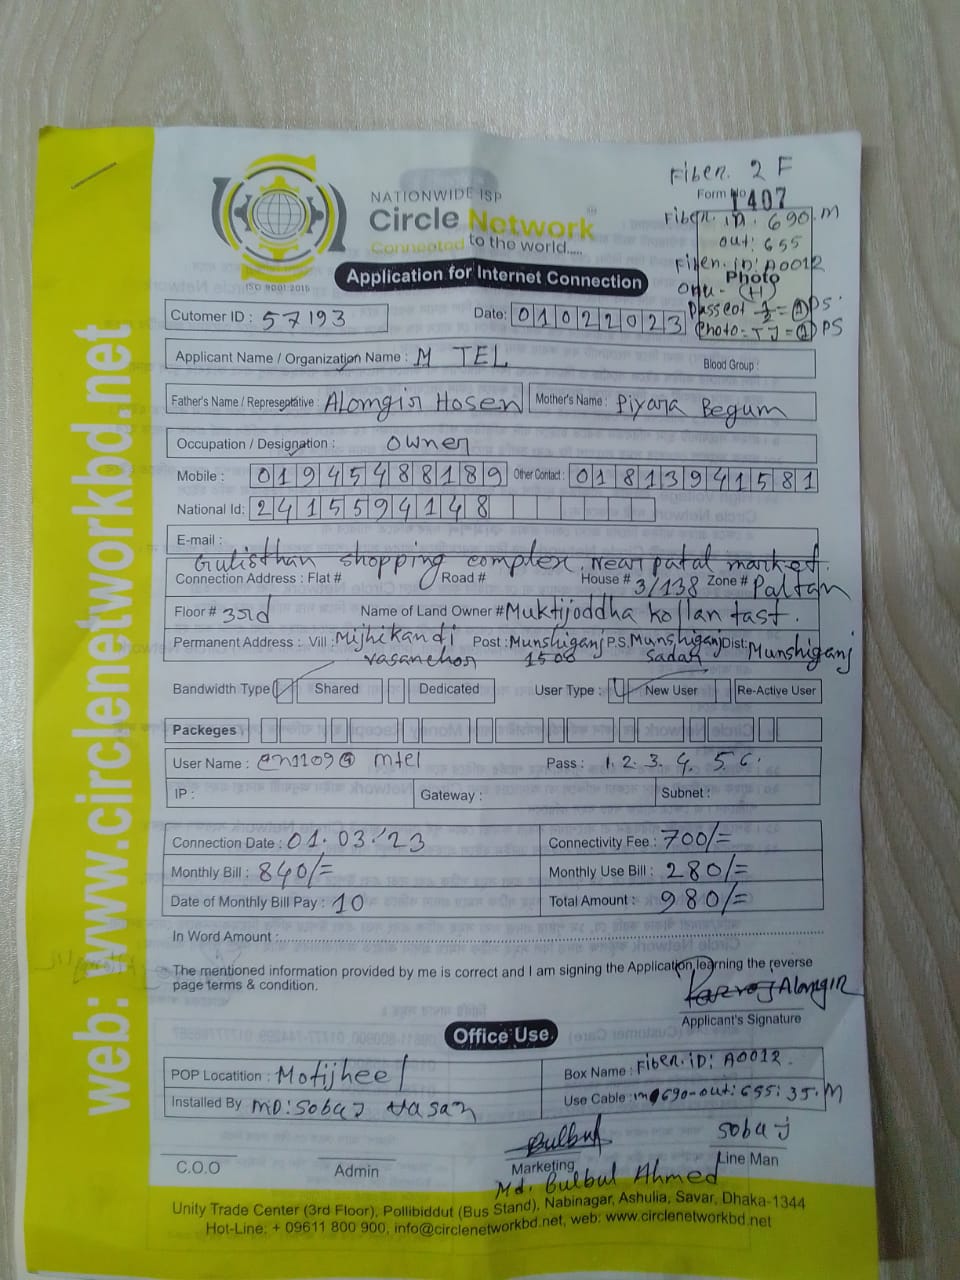 Fiber. 2 F
NATIONWIDE ISP
Circle Network
Connected to the world.....
ISO 9001:2015
Form No 1407
Fiber. in. 690.M
out: 655
Fiber. iD: A0012
Photo
onu- (H)
Application for Internet Connection
Cutomer ID : 57193
Date: 01022023
Applicant Name / Organization Name : M TEL
Blood Group :
Father's Name / Represeptative : Alomgir Hosen
Mother's Name : Piyara Begum
Occupation / Designation : Owner
Mobile : 01945488189 Other Contact : 01813941581
National Id: 2415594148
E-mail :
Gulisthan shopping complex. Near patal market.
Connection Address : Flat # Road # House # 3/138 Zone # Paltan
Floor # 3rd Name of Land Owner # Muktijoddha kollan tast.
Permanent Address : Vill : Mijhikandi Post : Munshiganj P.S. Munshiganj Dist: Munshiganj
vasanchor 1500 Sadar
Bandwidth Type Shared Dedicated User Type : New User Re-Active User
Packeges
User Name : mtel Pass : 1. 2. 3. 4. 5. 6.
IP : Gateway : Subnet :
Connection Date : 01.03.'23 Connectivity Fee : 700/=
Monthly Bill : 840/= Monthly Use Bill : 280/=
Date of Monthly Bill Pay : 10 Total Amount : 980/=
In Word Amount :
The mentioned information provided by me is correct and I am signing the Application learning the reverse
page terms & condition.
AlomgIR
Applicant's Signature
Office Use
POP Locatition : Motijheel Box Name : Fiber.iD: A0012.
Installed By MD: Sobaj Hasan Use Cable : in 690-out: 655: 35.M
Bulbul Sobaj
C.O.O Admin Marketing Line Man
Md. Bulbul Ahmed
Unity Trade Center (3rd Floor), Pollibiddut (Bus Stand), Nabinagar, Ashulia, Savar, Dhaka-1344
Hot-Line: + 09611 800 900, info@circlenetworkbd.net, web: www.circlenetworkbd.net
web: www.circlenetworkbd.net